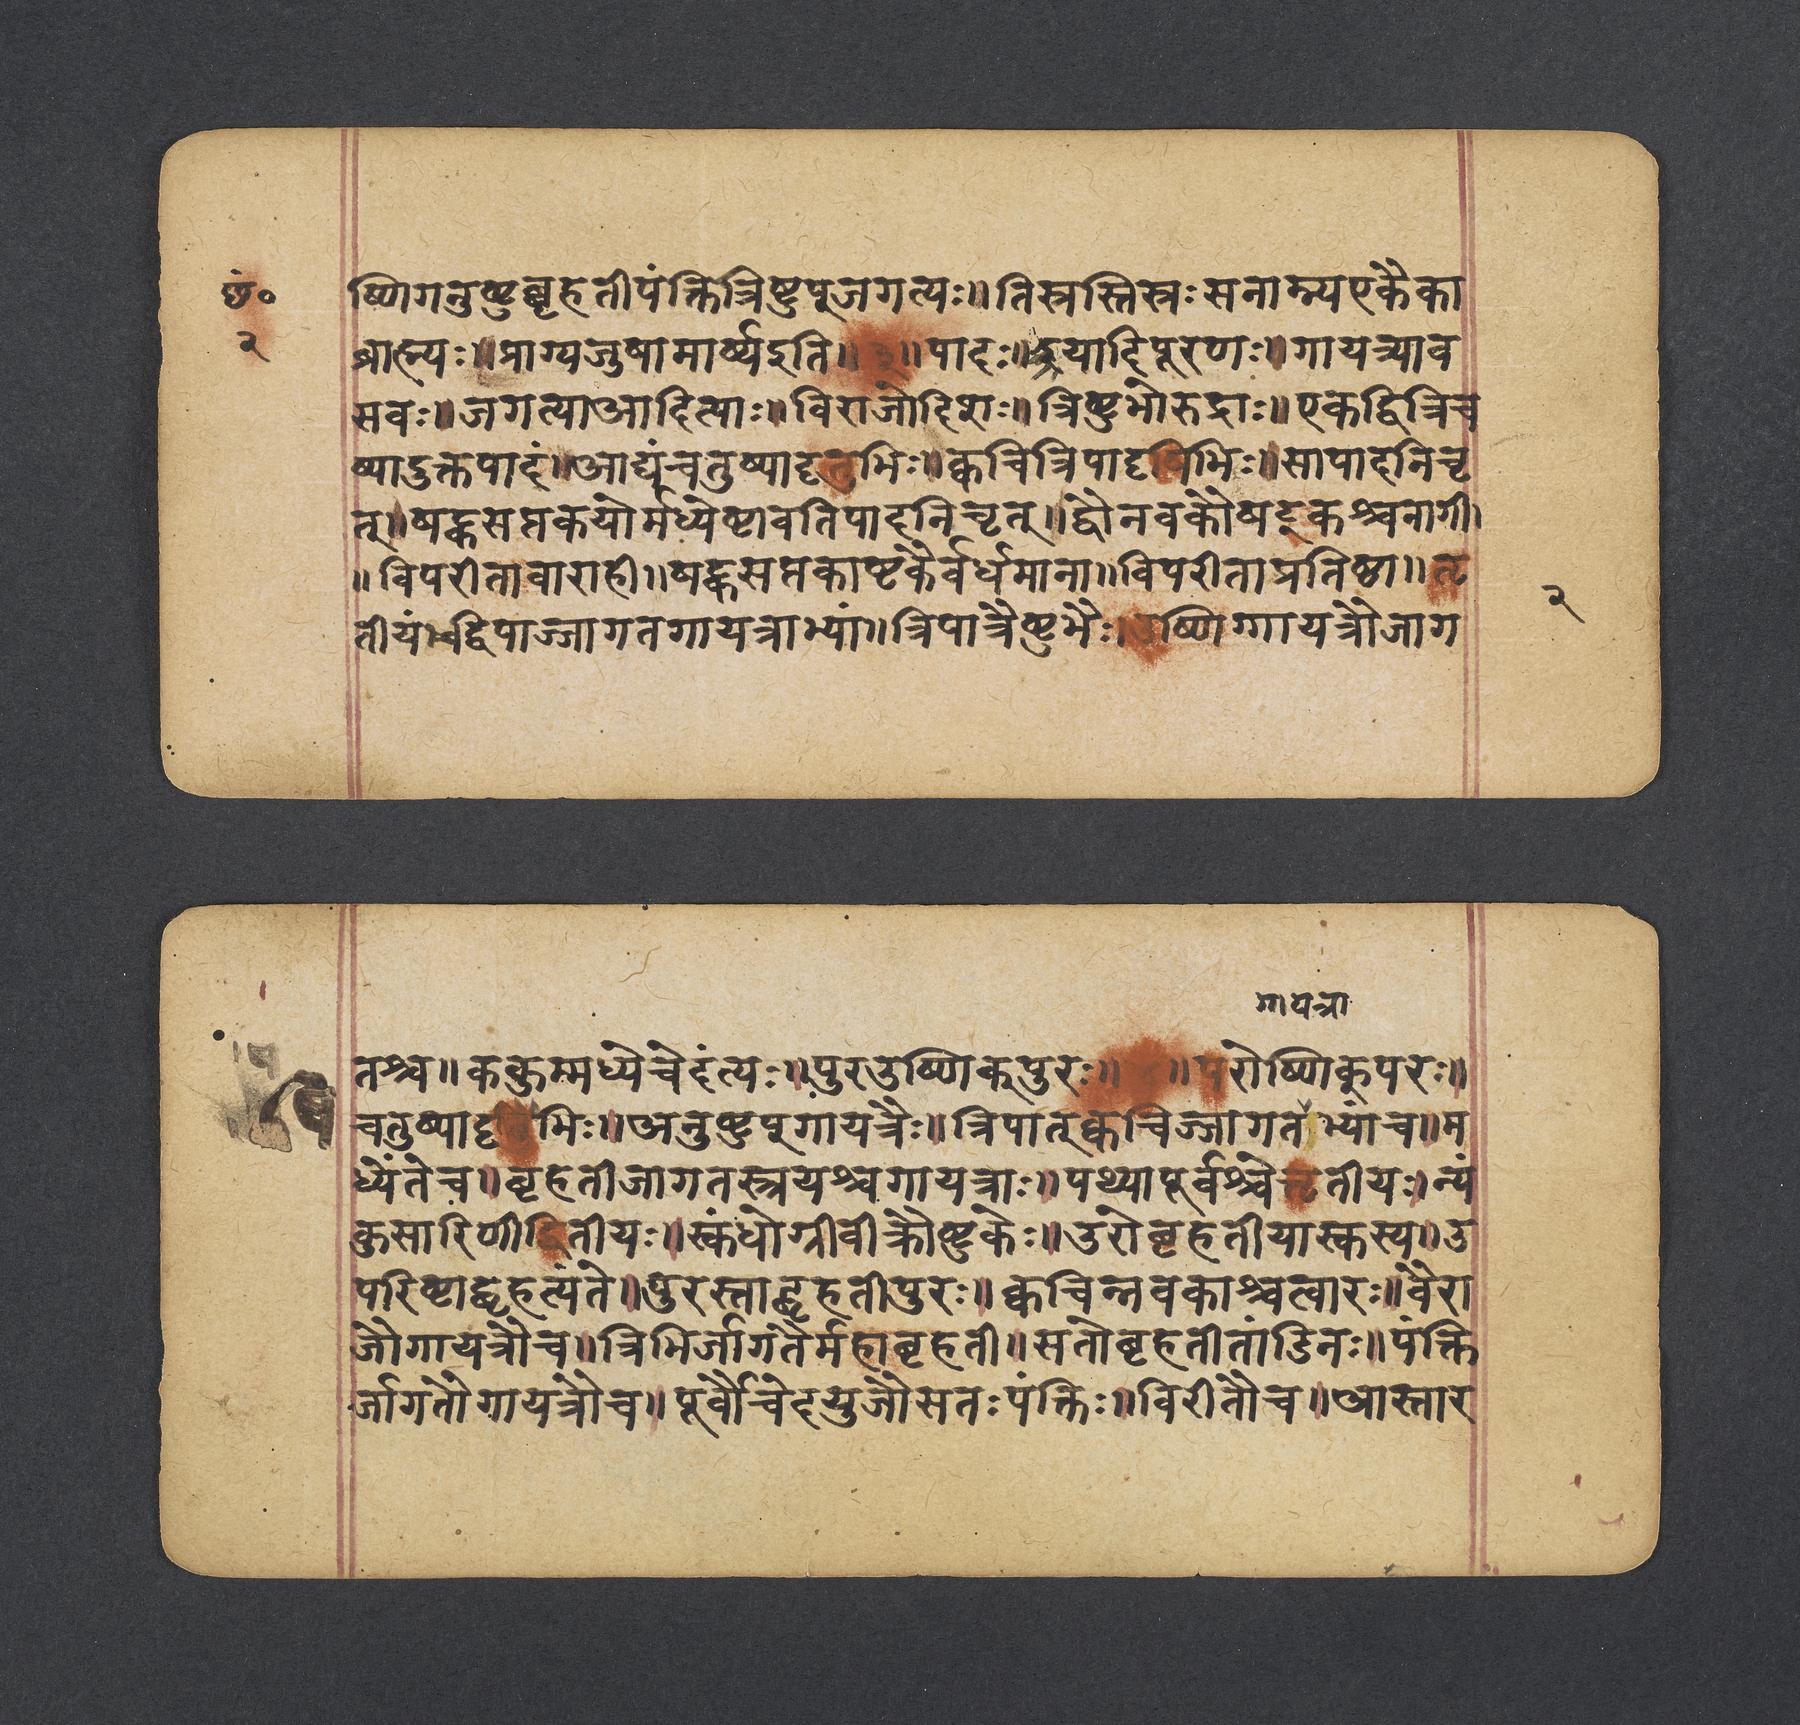 छं॰
२
ष्णिगनुष्टुब्बृहतीपंक्तित्रिष्टुप्जगत्यः॥तिस्रस्तिस्रःसनाम्न्यएकैका
ब्राह्म्यः॥प्राग्यजुषामार्ष्यइति॥३॥पादः॥इयादिपूरणः॥गायत्र्याव
सवः॥जगत्याआदित्याः॥विराजोदिशः॥त्रिष्टुभोरुद्राः॥एकद्वित्रिच
ष्पादुक्तपादं॥आद्यंचतुष्पादृतुभिः॥क्वचित्रिपादृषिभिः॥सापादनिचृ
त्॥षट्कसप्तकयोर्मध्येष्टावतिपादनिचृत्॥द्वौनवकौषट्कश्चनागी।
॥विपरीतावाराही॥षट्कसप्तकाष्टकैर्वर्धमाना॥विपरीताप्रतिष्ठा॥तृ
तीयंद्विपाज्जागतगायत्राभ्यां॥त्रिपात्रैष्टुभैः।उष्णिग्गायत्रौजाग
२
गायत्रा
तश्च॥ककुम्मध्येचेदंत्यः॥पुरउष्णिक्पुरः॥॥परोष्णिक्परः॥
चतुष्पादृषिभिः॥अनुष्टुप्गायत्रैः॥त्रिपात्क्वचिज्जागताभ्यांच॥म
ध्येंतेच॥बृहतीजागतस्त्रयश्चगायत्राः॥पथ्यापूर्वश्चेत्तृतीयः।न्यं
कुसारिणीद्वितीयः॥स्कंधोग्रीवीक्रौष्टुकेः॥उरोबृहतीयास्कस्य॥उ
परिष्टाद्बृहत्यंते॥पुरस्ताद्बृहतीपुरः॥क्वचिन्नवकाश्चत्वारः॥वैरा
जौगायत्रौच॥त्रिभिर्जागतैर्महाबृहती॥सतोबृहतीतांडिनः॥पंक्ति
र्जागतौगायत्रौच॥पूर्वौचेदयुजौसतःपंक्तिः॥विरीतौच॥आस्तार